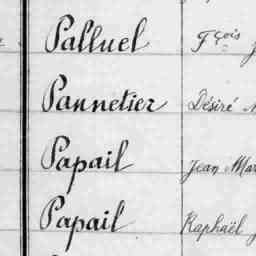 Palluel Fçois
Pannetier Désiré
Papail Jean Mar
Papail Raphaël